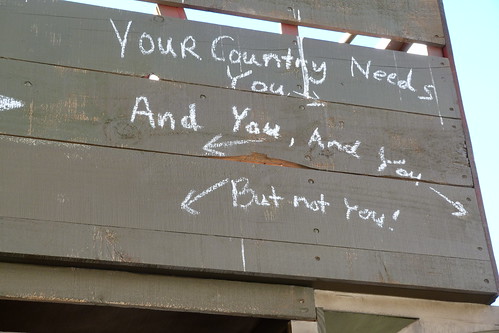 YOUR Country Needs
You
And You, And You,
But not You!